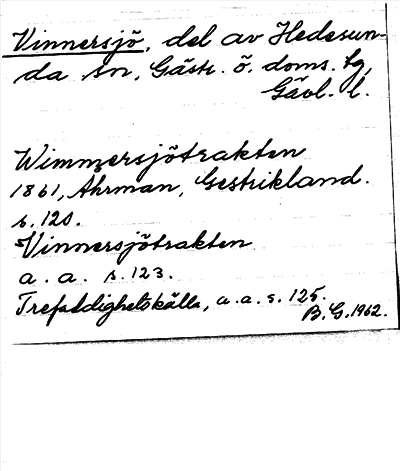 Vinnersjö, del av Hedesun-
da sn, Gästr. ö. doms. tg,
Gävl. l.
Wimmersjötrakten
1861, Ahrman, Gestrikland.
s. 120.
Vinnersjötrakten
a. a. s. 123.
Trefaldighetskälla, a. a. s. 125.
B. G. 1962.